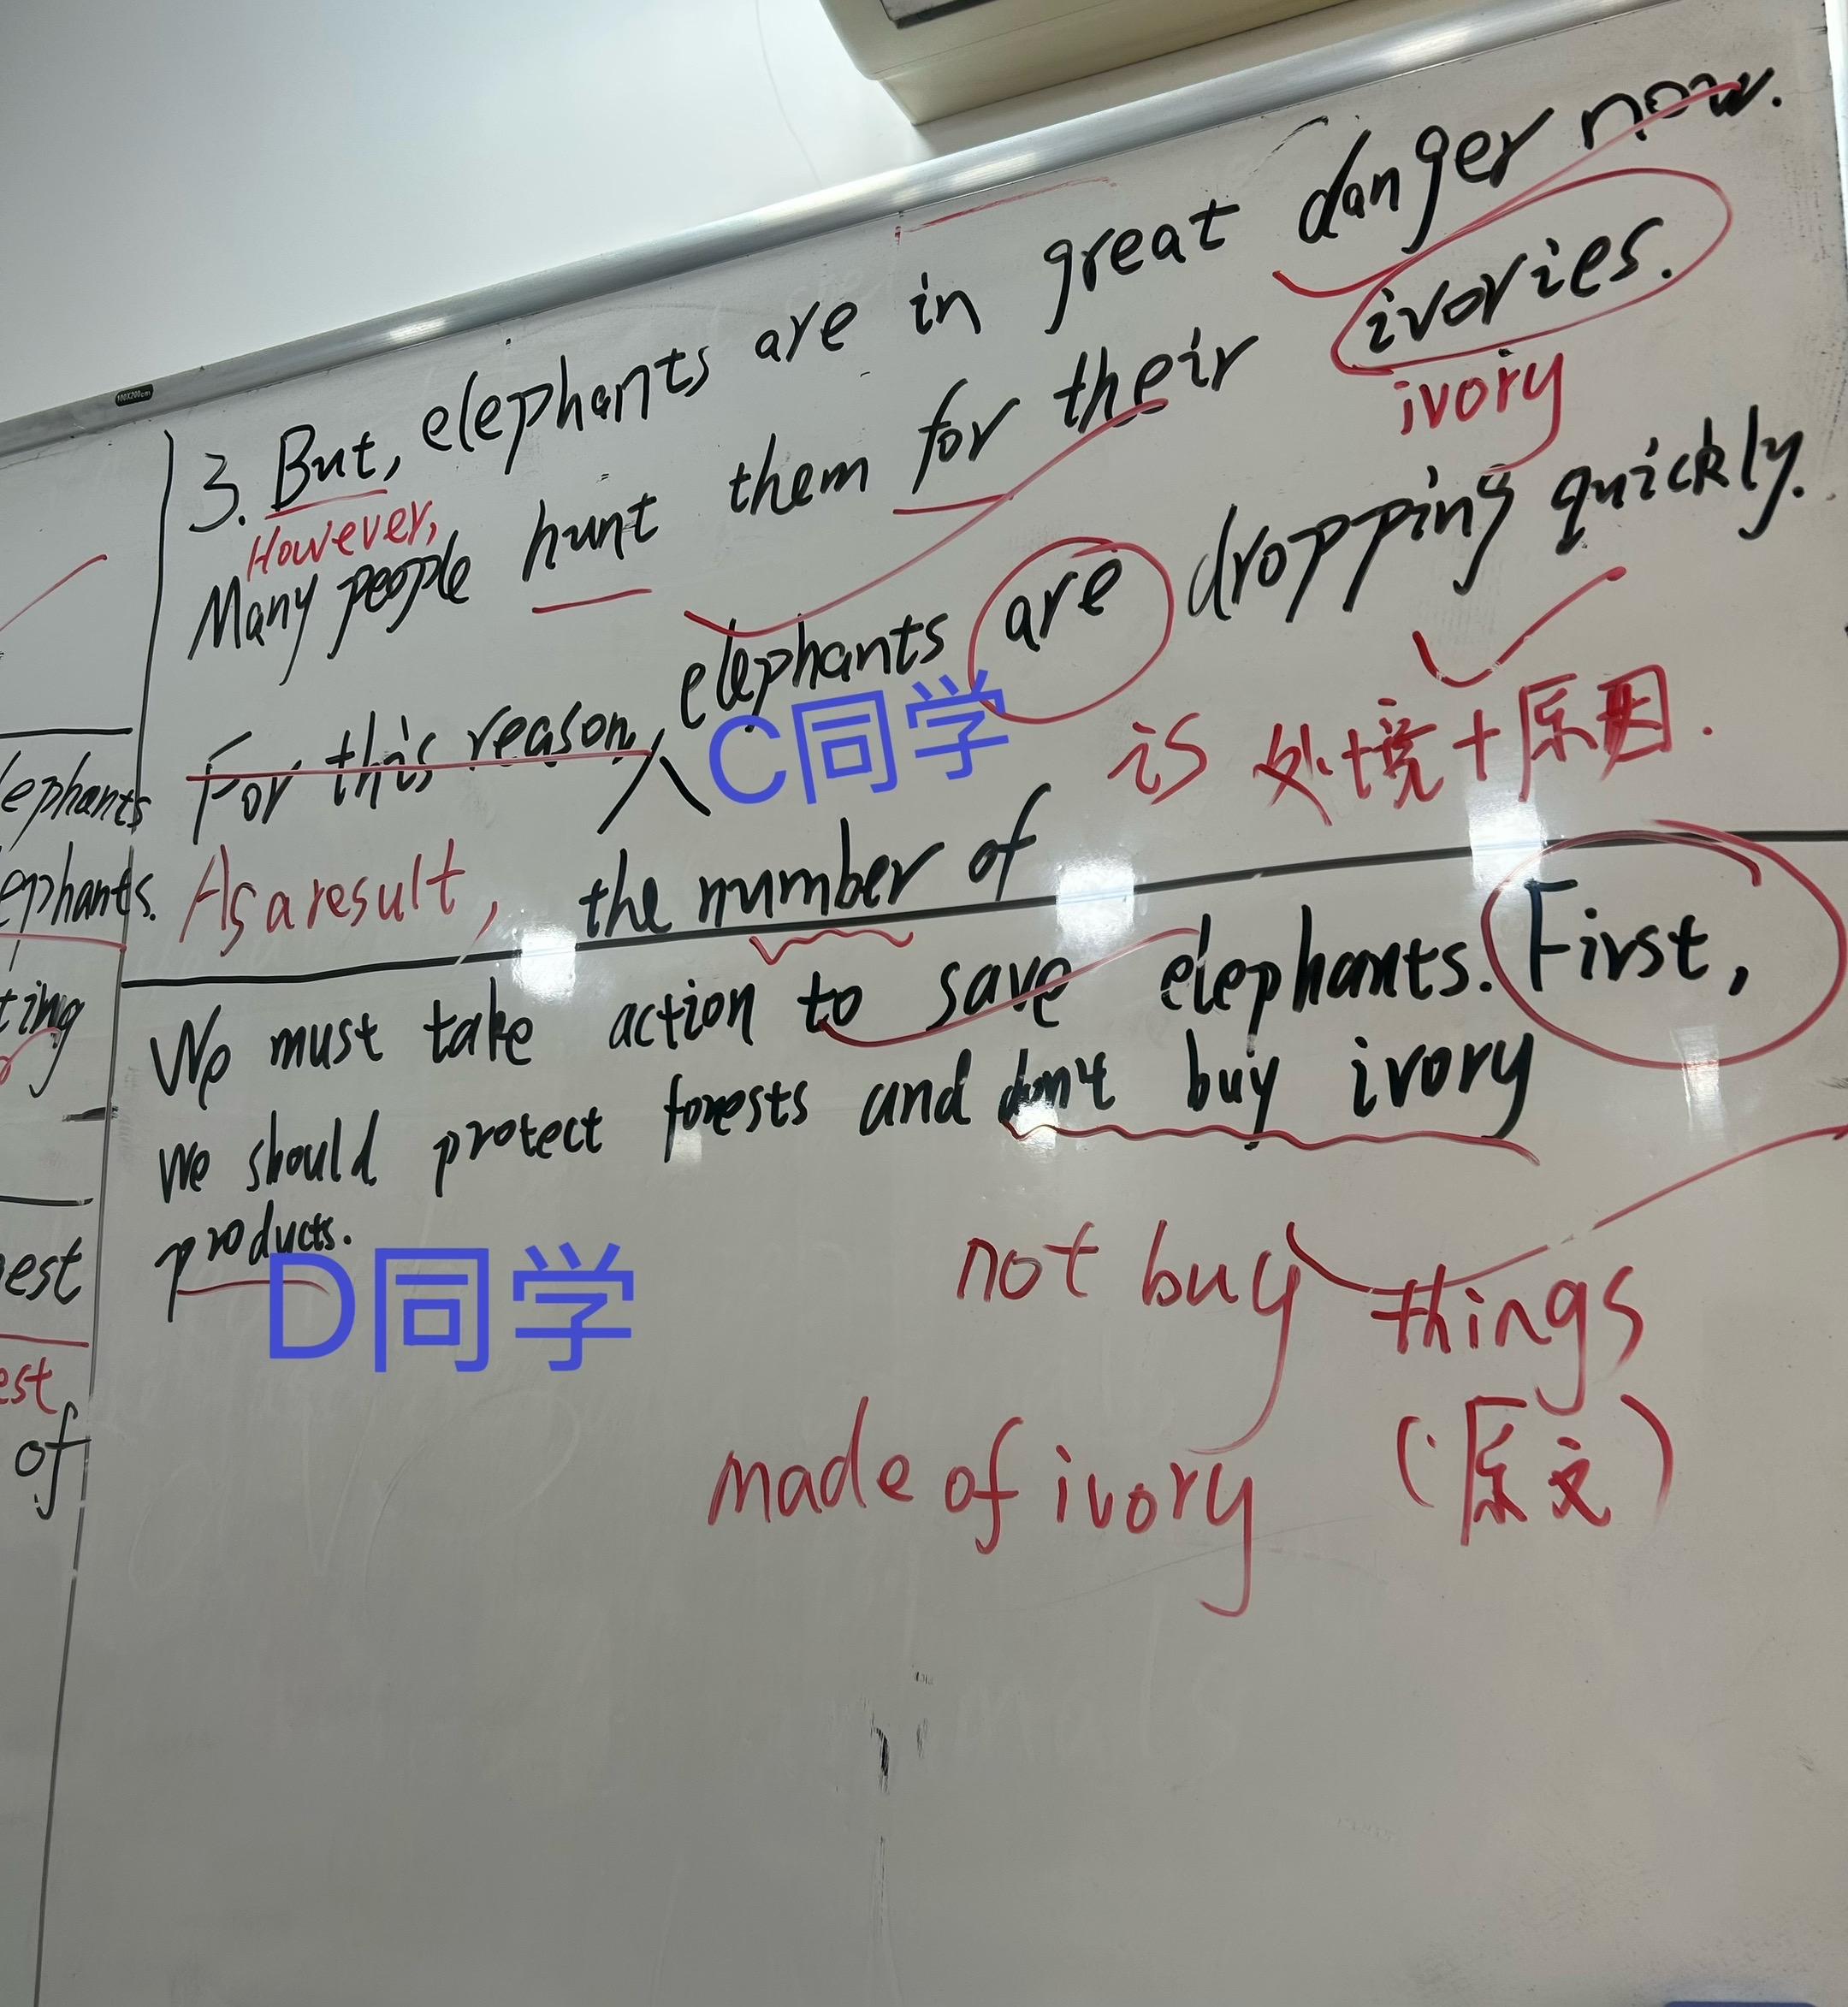 100X200cm
3. But, elephants are in great danger now.
However,
Many people hunt them for their ivories.
ivory
For this reason, elephants are dropping quickly.
C同学
is 处境+原因.
As a result, the number of
We must take action to save elephants. First,
we should protect forests and don't buy ivory
products.
D同学
not buy things
made of ivory (原文)
lephants
ephants.
ting
est
est
of